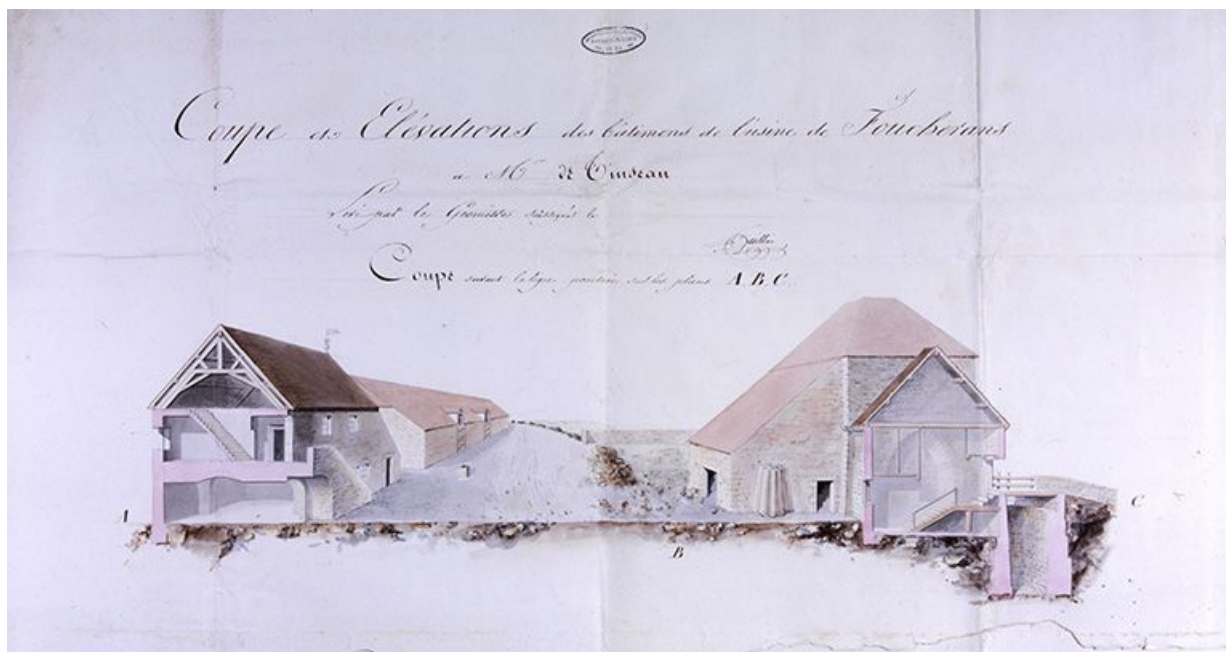 Coupe et Elévations des bâtimens de l'usine de Foucherans
à Mr de Tinseau
Levé par le Géomètre soussigné
Coupe suivant la ligne ponctuée sur les plans A. B. C.
A
C
B